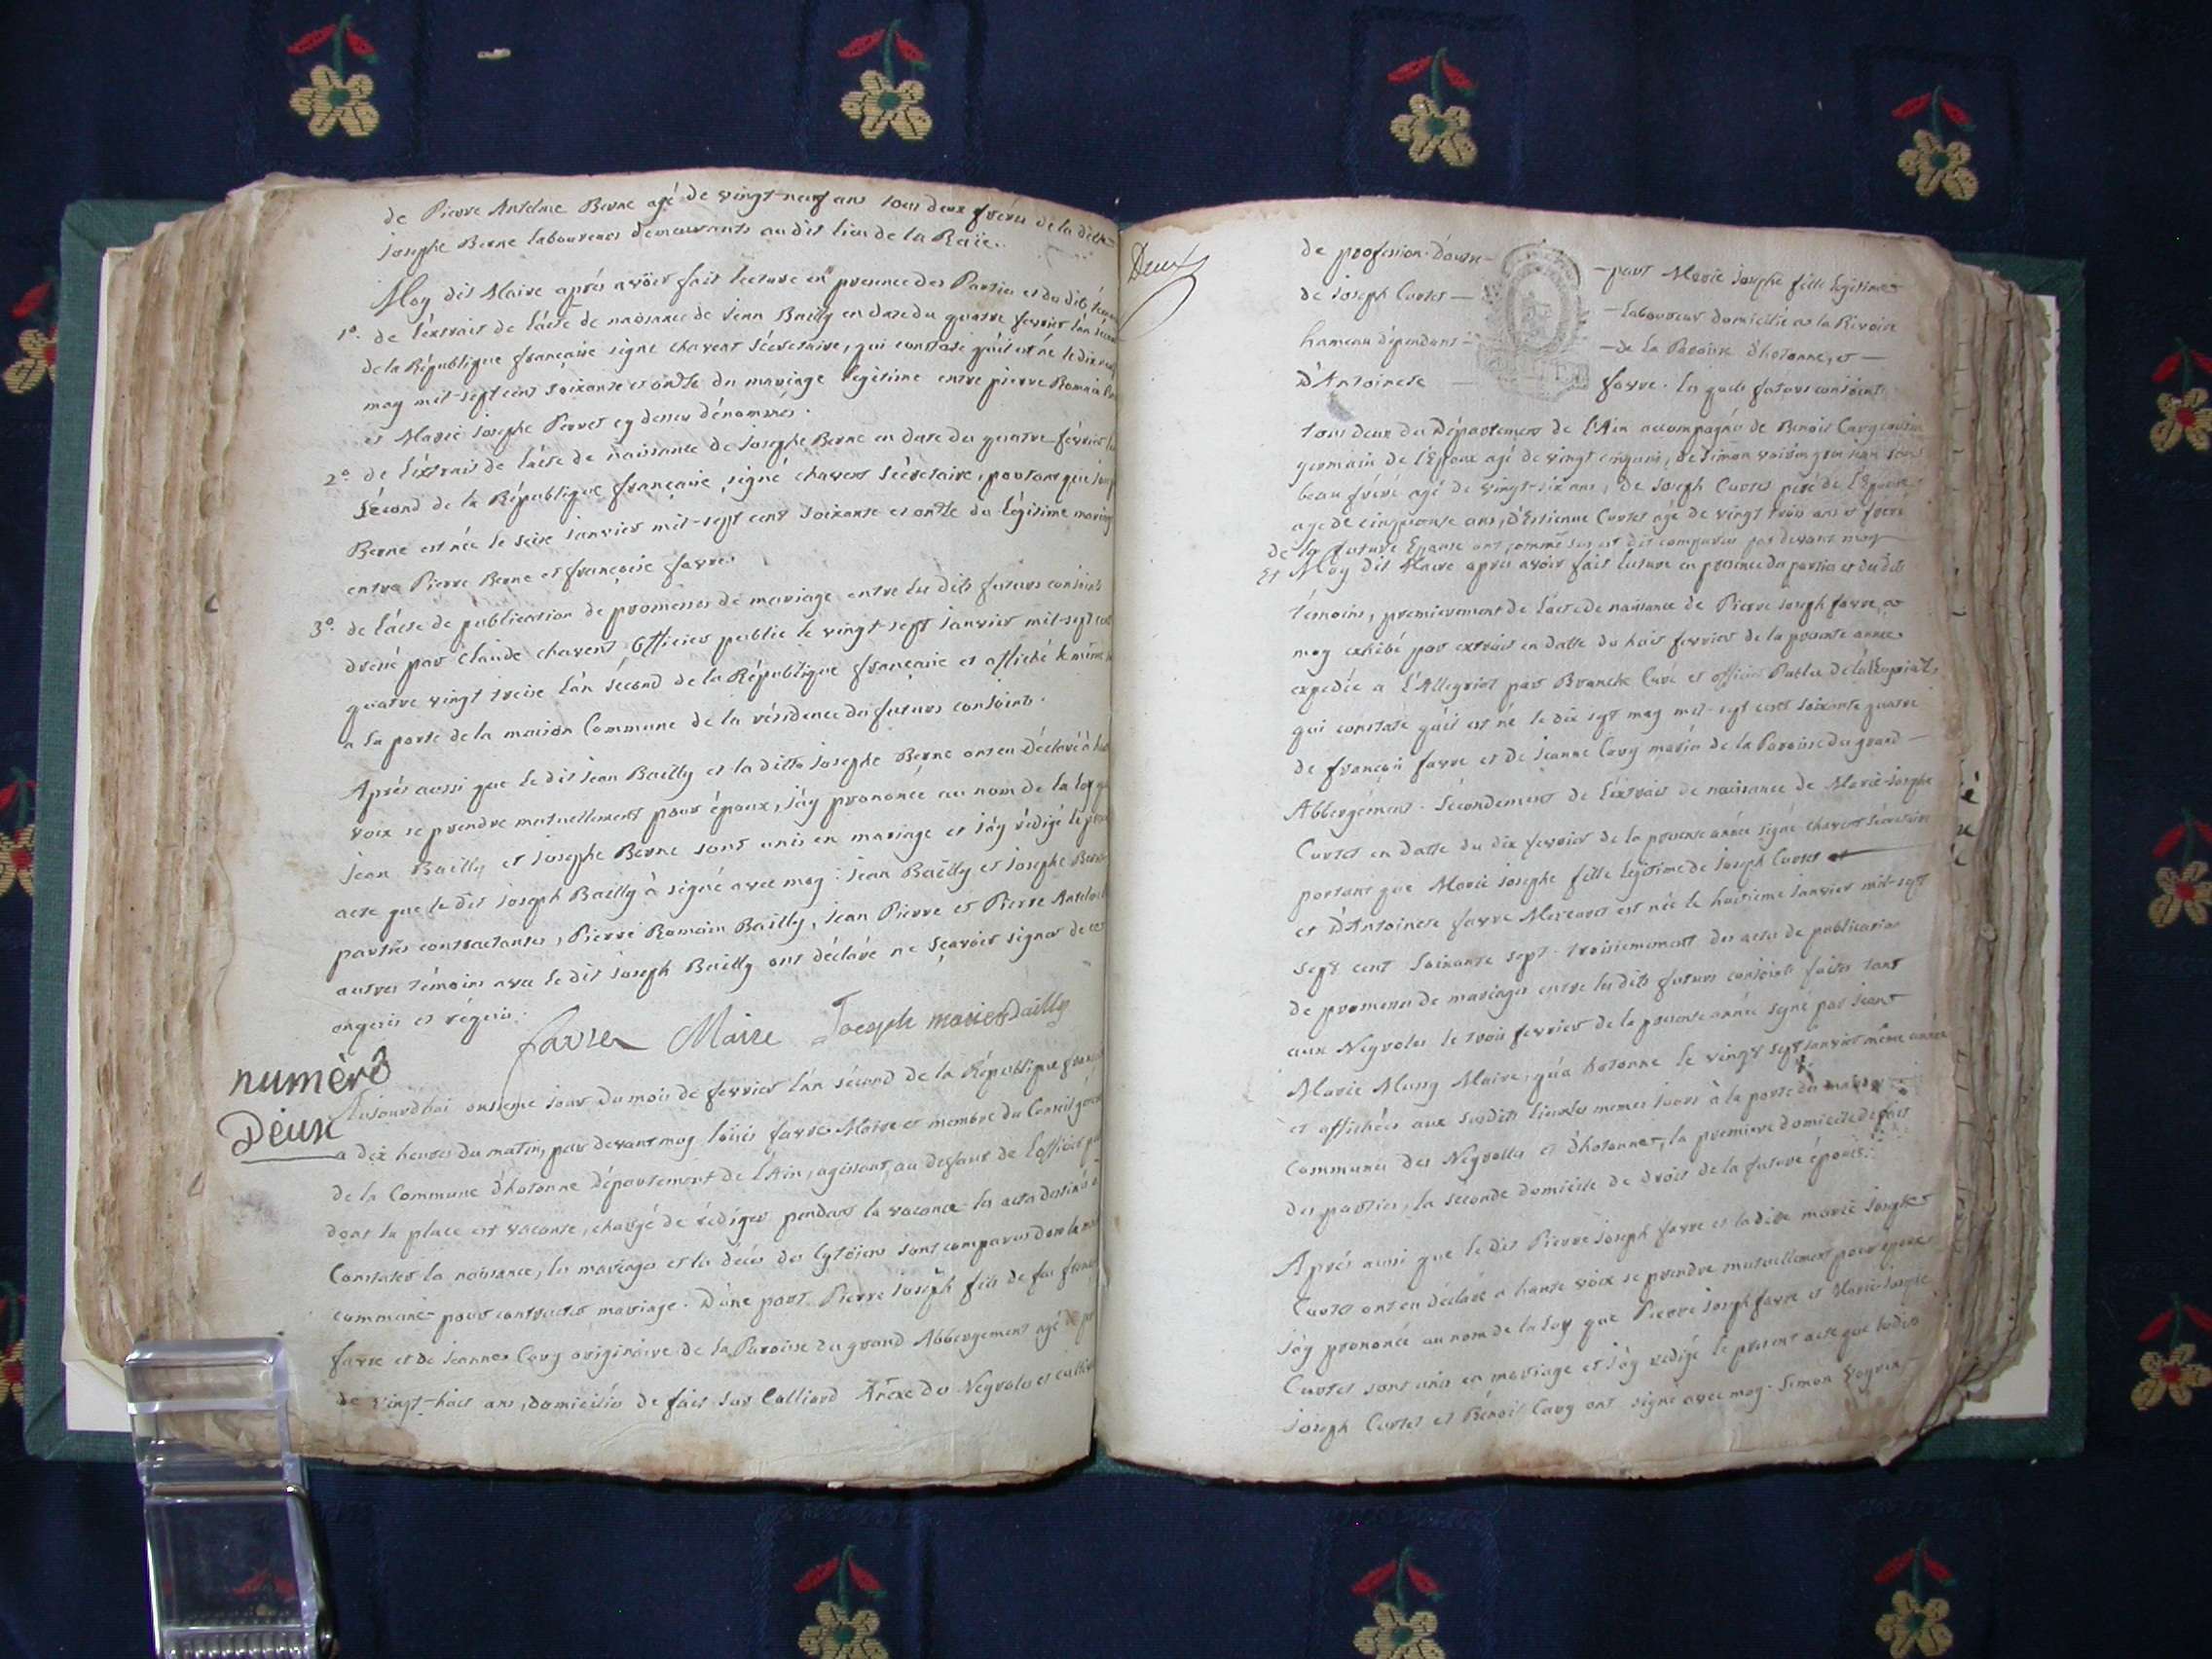 de Pierre Antelme Berne agé de vingt-neuf ans tous deux freres de la dite
Josephe Berne laboureurs demeurants au dit lieu de la Raïe.
Moy dit Maire aprés avöir fait lecture en presence des Parties et des dits
1º. de l'extrait de l'acte de naissance de Jean Bailly en date du quatre fevrier l'an
de la République française signé Chavent Sécretaire, qui constate qu'il est né le dix
may mil-sept cent soixante et onze du mariage légitime entre pierre Romain
et Marie Josephe Perret cy dessu dénommés.
2º. de l'extrait de l'acte de naissance de Josephe Berne en date du quatre fevrier
sécond de la République française signé chavent Sécretaire, portant que
Berne est née le seize Janvier mil-sept cent soixante et onze du légitime mariage
entre Pierre Berne et françoise favre.
3º. de l'acte de publication de promesses de mariage entre les dits futurs conjoints
dressé par Claude chavent Officier public le vingt-sept Janvier mil-sept cent
quatre vingt treize l'an sécond de la République française et affiché le même
a la porte de la maison Commune de la résidence des futurs conjoints.
Aprés aussi que le dit Jean Bailly et la ditte Josephe Berne ont eu déclaré à haute
voix se prendre mutuellement pour époux, j'ay prononcé au nom de la loy que
Jean Bailly et Josephe Berne sont unis en mariage et j'ay rédigé le présent
acte que le dit Joseph Bailly à signé avec moy: Jean Bailly et Josephe Berne
parties contractantes, Pierre Romain Bailly, Jean Pierre et Pierre Antelme
autres témoins avec le dit Joseph Bailly ont déclaré ne sçavoir signer de ce
enquis et requis.
favre Maire Joseph marie Bailly
numèrô
Deux
Aujourd'hui onzieme jour du mois de fevrier l'an sécond de la République française
a dix heures du matin, par devant moy Loüis favre Maire et membre du Conseil général
de la Commune d'hotonne Département de l'Ain, agissant, au deffaut de l'officier
dont la place est vacante, chargé de rédiger pendant la vacance les actes destinés à
Constater la naissance, les mariages et les décés des Cytöiens sont comparus dans la
commune pour contracter mariage. D'une part Pierre Joseph fils de feu françois
favre et de Jeanne Cary originaire de la Paroisse du grand Abbergement agé
de vingt-huit ans, domicilié de fait sur Calliard Anexe des Neyroles et
Deux
de profession. d'autre — part Marie Josephe fille légitime
de Joseph Curtet — — laboureur domicilié a la Rivoire
hameau dépendant — — de la Paroisse d'hotonne, et —
D'Antoinete — favre. les quels futurs conjoints
tous deux du Département de l'Ain accompagnés de Benoit Cary cousin
germain de l'Epoux agé de vingt cinq ans, de Simon
beau frére agé de vingt-six ans, de Joseph Curtet pere de l'Epouse
agé de cinquante ans, d'Estienne Curtet agé de vingt trois ans et frere
de la future Epouse ont comme sus est dit comparus par devant moy
Et Moy dit Maire apres avoir fait lecture en presence des parties et des dits
témoins, premierement de l'acte de naissance de Pierre Joseph favre a
moy exhibé par extrait en datte du huit fevrier de la presente année
expediée a l'Alleyriat par Branche Curé et officier Public de l'Alleyriat,
qui constate qu'il est né le dix sept may mil-sept cent soixante quatre
de françois favre et de Jeanne Cary mariés de la Paroisse du grand —
Abbergément. Sécondement de l'extrait de naissance de Marie-Josephe
Curtet en datte du dix fevrier de la presente année signé chavent Sécretaire
portant que Marie Josephe fille légitime de Joseph Curtet et —
et d'Antoinete favre est née le huitieme Janvier mil-sept
sept cent Soixante sept. troisiemement des actes de publication
de promesses de mariages entre les dits futurs conjoints faites tant
aux Neyroles le trois fevrier de la presente année signé par Jean
Marie Maire, qu'a hotonne le vingt sept Janvier même année
et affichées aux susdits lieux les memes jours à la porte des maisons
Communes des Neyrolles et d'hotonnes, la premiere domicile de fait
des parties, la séconde domicile de droit de la future épouse.
Aprés aussi que le dit Pierre Joseph favre et la dite marie Josephe
Curtet ont eu déclaré a haute voix se prendre mutuellement pour époux
j'ay prononcé au nom de la Loy que Pierre Joseph favre et Marie Josephe
Curtet sont unis en mariage et j'ay redigé le present acte que le dit
Joseph Curtet et Benoit Cary ont signé avec moy. Simon